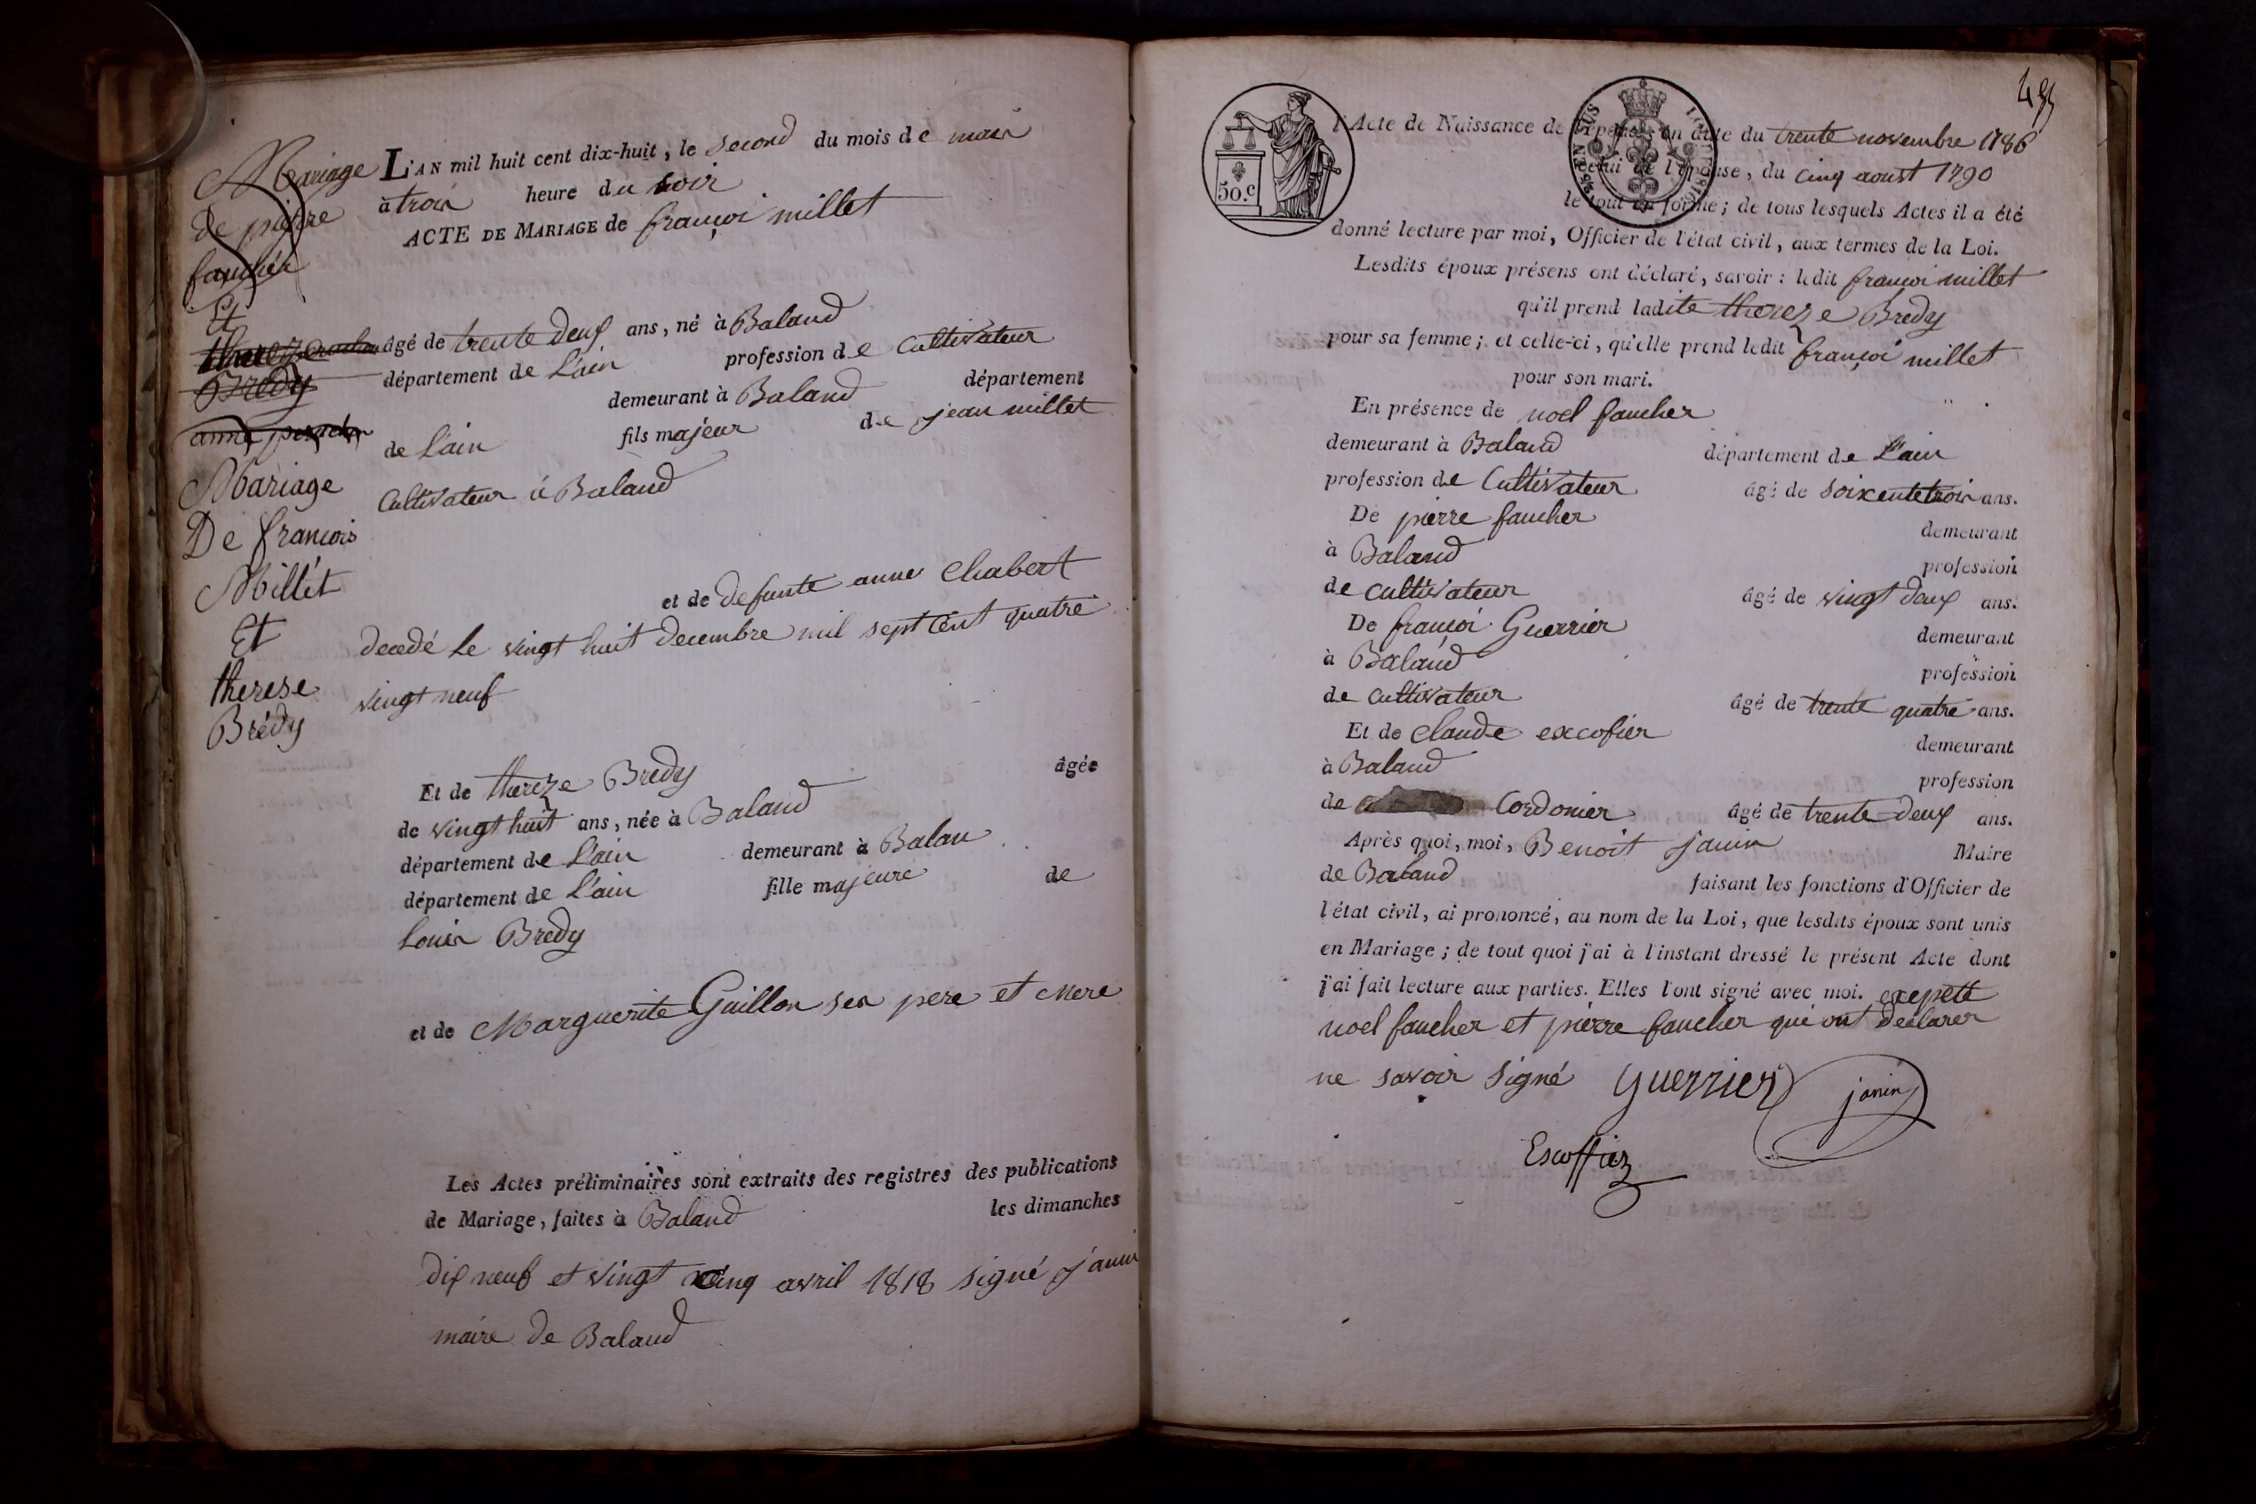 Mariage
de pierre
faucher
Et
therese
Bredy
anne
Mariage
De francois
Millet
Et
therese
Brédy
L'AN mil huit cent dix-huit, le second du mois de mai
à trois heure du soir
ACTE DE MARIAGE de françoi millet
âgé de trente deux ans, né à Baland
département de L'ain profession de cultivateur
demeurant à Baland département
de L'ain fils majeur de jean millet
Cultivateur à Baland
et de defunte anne Chabert
decedé le vingt huit decembre mil sept cent quatre
vingt neuf
Et de thereze Bredy âgée
de vingt huit ans, née à Baland
département de L'ain demeurant à Balan
département de L'ain fille majeure de
Louis Bredy
et de Marguerite Guillon ses pere et mere
Les Actes préliminaires sont extraits des registres des publications
de Mariage, faites à Baland les dimanches
dix neuf et vingt cinq avril 1818 signé janin
maire de Baland
50.c
l'Acte de Naissance de l'époux, en date du trente novembre 1786
celui de l'épouse, du cinq aoust 1790
le tout en forme; de tous lesquels Actes il a été
donné lecture par moi, Officier de l'état civil, aux termes de la Loi.
Lesdits époux présens ont déclaré, savoir: ledit françoi millet
qu'il prend ladite thereze Bredy
pour sa femme; et celle-ci, qu'elle prend ledit françoi millet
pour son mari.
En présence de noel faucher
demeurant à Baland département de L'ain
profession de Cultivateur âgé de soixente trois ans.
De pierre faucher demeurant
à Baland profession
de cultivateur âgé de vingt deux ans.
De françoi Guerrier demeurant
à Baland profession
de cultivateur âgé de trente quatre ans.
Et de claude excofier demeurant
à Baland profession
de Cordonier âgé de trente deux ans.
Après quoi, moi, Benoit janin Maire
de Baland faisant les fonctions d'Officier de
l'état civil, ai prononcé, au nom de la Loi, que lesdits époux sont unis
en Mariage; de tout quoi j'ai à l'instant dressé le présent Acte dont
j'ai fait lecture aux parties. Elles l'ont signé avec moi. excepetté
noel faucher et pierre faucher qui ont declarer
ne savoir signé Guerrier janin
Escoffier